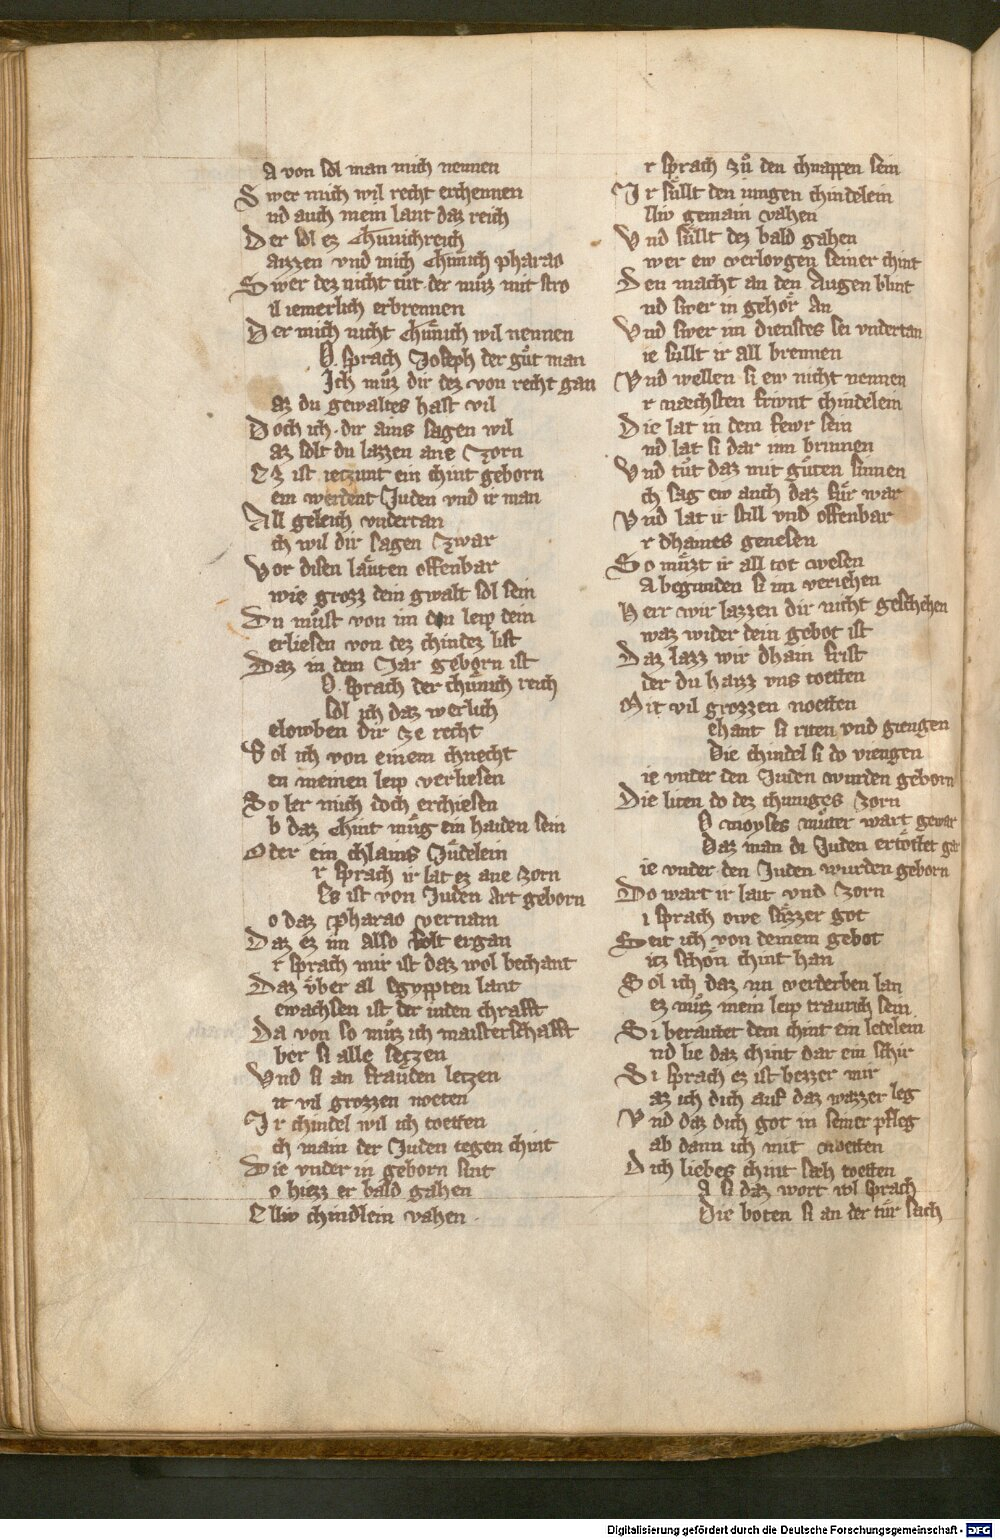 A von sol man mich nennen
Swer mich wil recht erchennen
nd auch mein lant daz reich
Der sol ez Chunichreich
aizzen vnd mich Chünich pharao
Swer dez nicht tüt der müz mit stro
il iemerlich erbrennen
Der mich nicht Chünich wil nennen
O sprach Joseph der güt man
Ich müz dir dez von recht gan
az du gewaltes hast vil
Doch ich dir ains sagen wil
az solt du lazzen ane Zorn
Ez ist ietzunt ein chint geborn
em werdent Juden vnd ir man
All geleich vndertan
ch wil dir sagen Zwar
Vor disen läuten offenbar
wie grozz dein gwalt sol sein
Du müst von im den leip dein
erliesen von dez chindez list
Daz in dem Jar geborn ist
O sprach der chünich reich
sol ich daz werlich
elowben dir ze recht
Sol ich von einem chnecht
en meinen leip verliesen
So ler mich doch erchiesen
b daz Chint müg ein haiden sein
Oder ein chlains Jüdelein
r sprach ir lat ez ane zorn
Es ist von Juden art geborn
o daz pharao vernam
Daz ez im also solt ergan
r sprach mir ist daz wol bechant
Daz über al Egyppten lant
ewachsen ist der inden chrafft
Da von so müz ich maisterschafft
ber si alle seczen
Vnd si an fräuden letzen
it vil grozzen noeten
Ir chindel wil ich toetten
ch main der Juden tegen chint
Die vnder in geborn sint
o hiezz er bald gahen
Elliv chindlein vahen
r sprach zü den chnappen sein
Ir süllt den iungen chindelein
lliv gemain vahen
Vnd süllt dez bald gahen
wer ew verlovgen seiner chint
Den macht an den Augen blint
nd swer in gehör An
Vnd swer im dienstes sei vndertan
ie süllt ir all brennen
Vnd wellen si ew nicht nennen
r næchsten frwnt chindelein
Die lat in dem fewr sein
nd lat si dar inn brinnen
Vnd tüt daz mit güten sinnen
ch sag ew auch daz für war
Vnd lat ir still vnd offenbar
r dhaines genesen
So müzt ir all tot wesen
A begunden si im veriehen
Herr wir lazzen dir nicht geschehen
waz wider dein gebot ist
Daz lazz wir dhain frist
der du haizz vns toetten
Mit vil grozzen noetten
ehant si riten vnd giengen
Die chindel si do viengen
ie vnder den Juden wurden geborn
Die liten do dez chuniges zorn
O moyses müter wart gewar
Daz man di Juden ertöttet gar
ie vnder den Juden wurden geborn
Do wart ir laut vnd zorn
i sprach owe süzzer got
Seit ich von deinem gebot
itz schön chint han
Sol ich daz nu verderben lan
ez müz mein leip traurich sein
Si beraittet dem chint ein ledelein
nd lie daz chint dar ein schir
Si sprach ez ist bezzer mir
az ich dich auf daz wazzer leg
Vnd daz dich got in seiner pfleg
ab dann ich mit noetten
Dich liebes chint sæh toetten
A si daz wort wl sprach
Die boten si an der tür sach
Digitalisierung gefördert durch die Deutsche Forschungsgemeinschaft - DFG